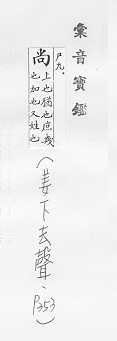 彙音寶鑑
ㄕㄤˋ
尚
上也猶也庶幾
也加也又姓也
(姜下去聲、P353)